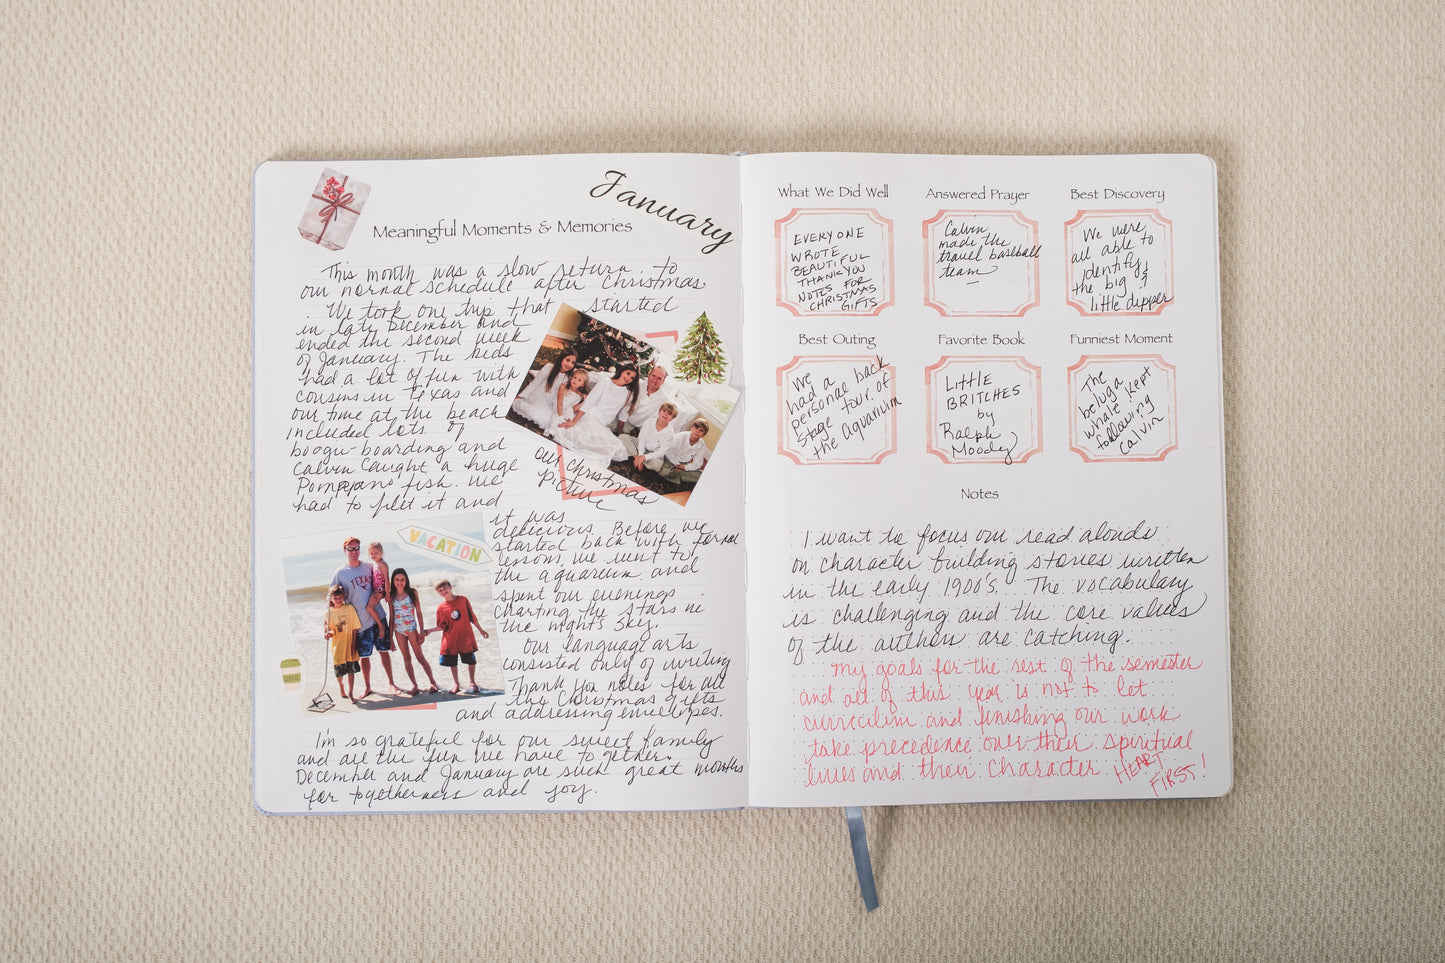 January
Meaningful Moments & Memories
This month was a slow return to
our normal schedule after Christmas
We took one trip that started
in late December and
ended the second week
of January. The kids
had a lot of fun with
cousins in Texas and
our time at the beach
included lots of
boogie boarding and
Calvin caught a huge
Pompano fish. We
had to filet it and
our Christmas
picture
VACATION
TEXAS
COFFEE
it was
delicious. Before we
started back with formal
lessons, we went to
the aquarium and
spent our evenings
charting the stars in
the night sky.
Our language arts
consisted only of writing
Thank you notes for all
the Christmas gifts
and addressing envelopes.
I'm so grateful for our sweet family
and all the fun we have together.
December and January are such great months
for togetherness and joy.
What We Did Well
EVERYONE
WROTE
BEAUTIFUL
THANKYOU
NOTES FOR
CHRISTMAS
GIFTS
Answered Prayer
Calvin
made the
travel baseball
team
Best Discovery
We were
all able to
identify
the big &
little dipper
Best Outing
We
had a
personal back
stage tour of
the aquarium
Favorite Book
LITTLE
BRITCHES
by
Ralph
Moody
Funniest Moment
The
beluga
whale kept
following
Calvin
Notes
I want to focus our read alouds
on character building stories written
in the early 1900's. The vocabulary
is challenging and the core values
of the authors are catching.
My goals for the rest of the semester
and all of this year is not to let
curriculim and finishing our work
take precedence over their spiritual
lives and their character HEART
FIRST!